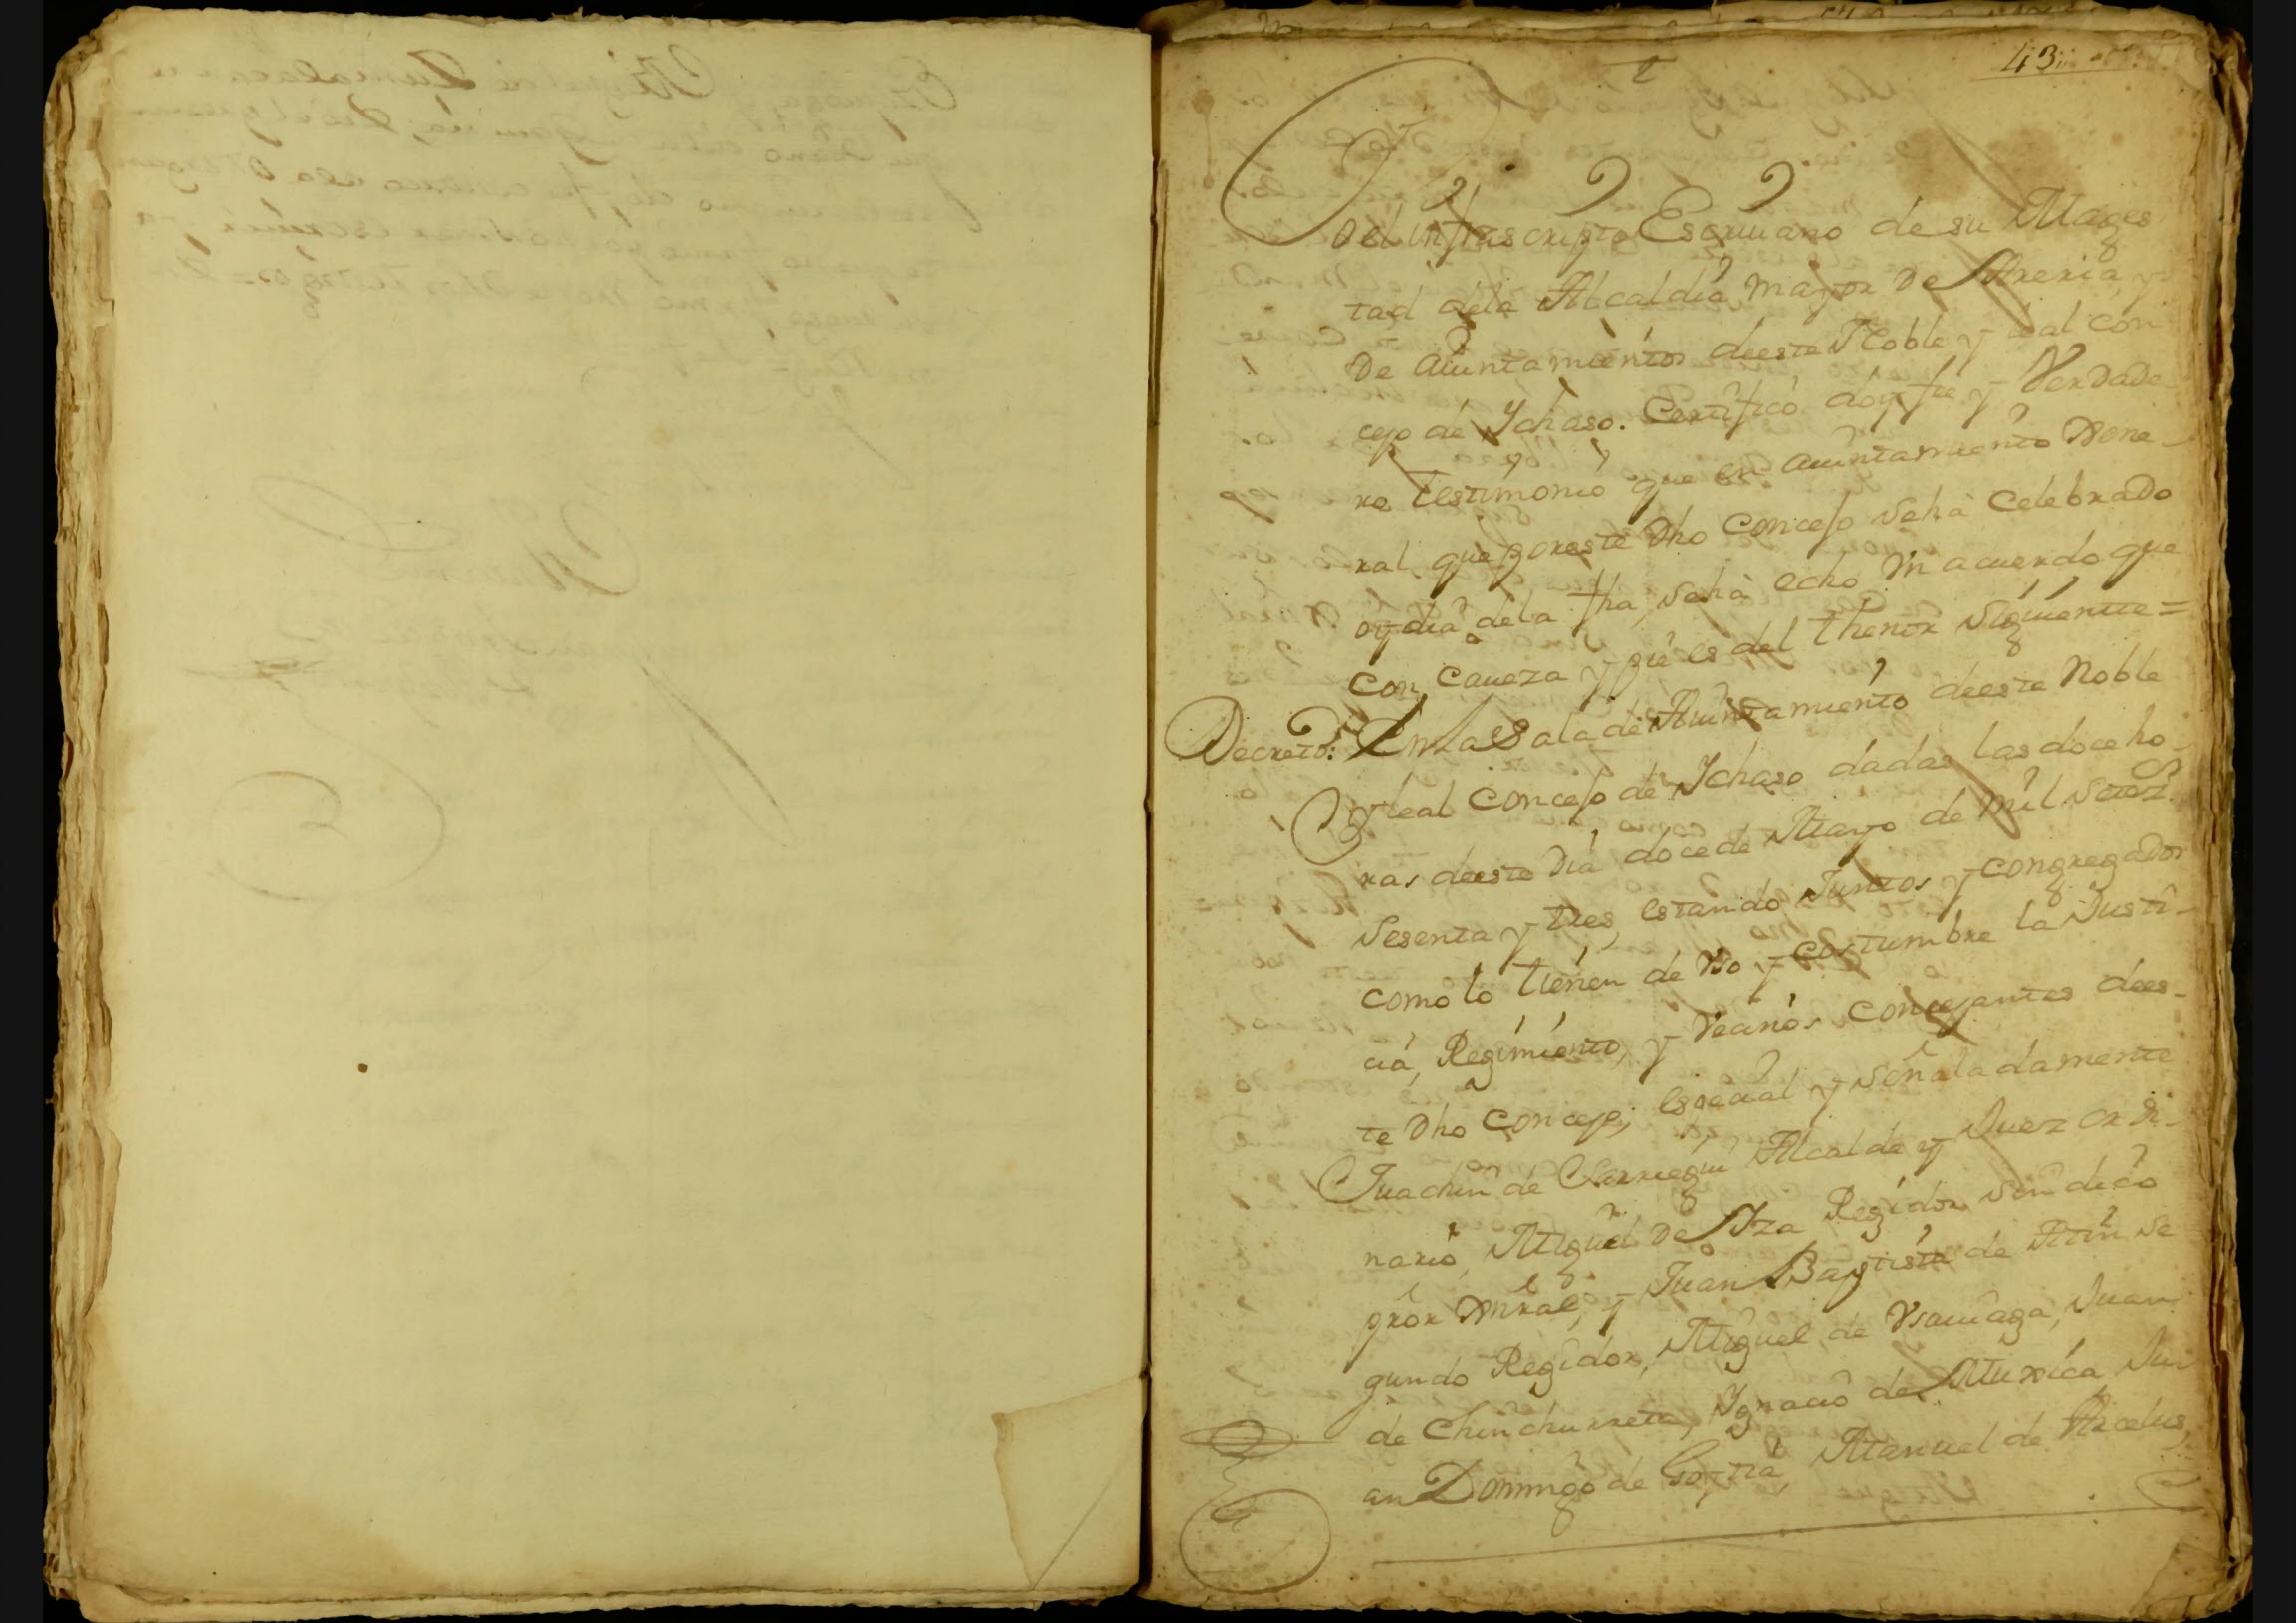 43
Yo el infrascripto Escriuano de su Mages
tad dela Alcaldia mayor de Areria, y
de aiuntamientos deeste Noble y leal con
cejo de Ychaso. Certifico doy fee y Verdade
ro testimonio que en aiuntamiento Xene
ral que por este dho Concejo seha Celebrado
oy dia dela fha, seha echo Vn acuerdo que
con caueza y pie es del thenor siguiente =
Decreto: En la Sala de Aiuntamiento deeste Noble
y leal Concejo de Ychaso dadas las doce ho
ras deeste dia doce de Mayo de mil setez.
sesenta y tres, estando Juntos y congregados
como lo tienen de vso y costumbre la Justi
cia, Regimiento, y Vecinos concejantes dees
te dho Concejo; especial y señaladamente
Juachin de Alcalde y Juez ordi
nario, Miguel de Aza Regidor sindico
pror Xnral, y Juan Baptista de Atin se
gundo Regidor, Miguel de Vsauiaga, Juan
de Chinchurreta, Ygnacio de Muxica Ju
an Domingo de Goytia, Manuel de Arcelus,